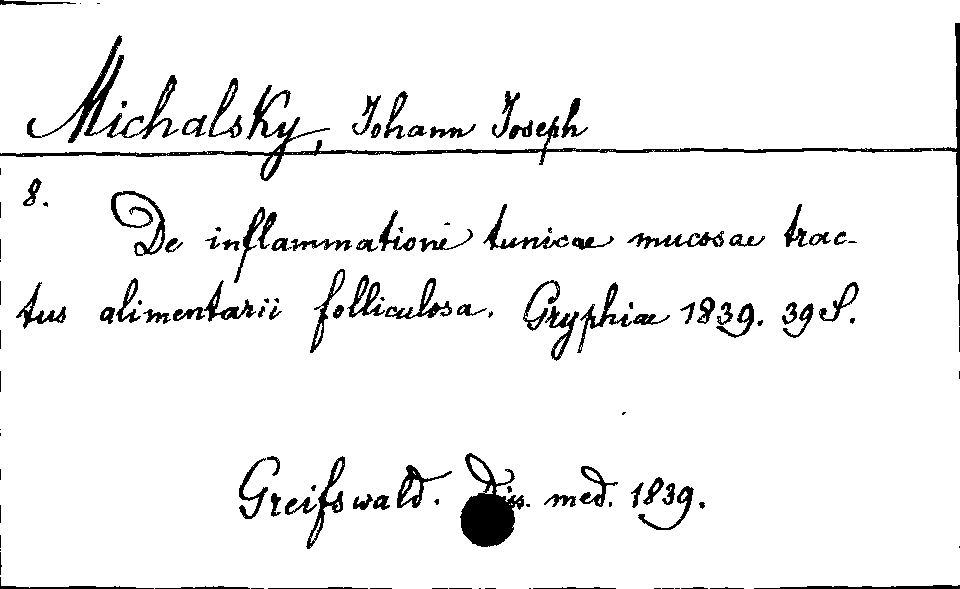 Michalsky, Johann Joseph
8.
De inflammatione tunicae mucosae trac-
tus alimentarii folliculosa. Gryphiae 1839. 39 S.
Greifswald. Diss. med. 1839.